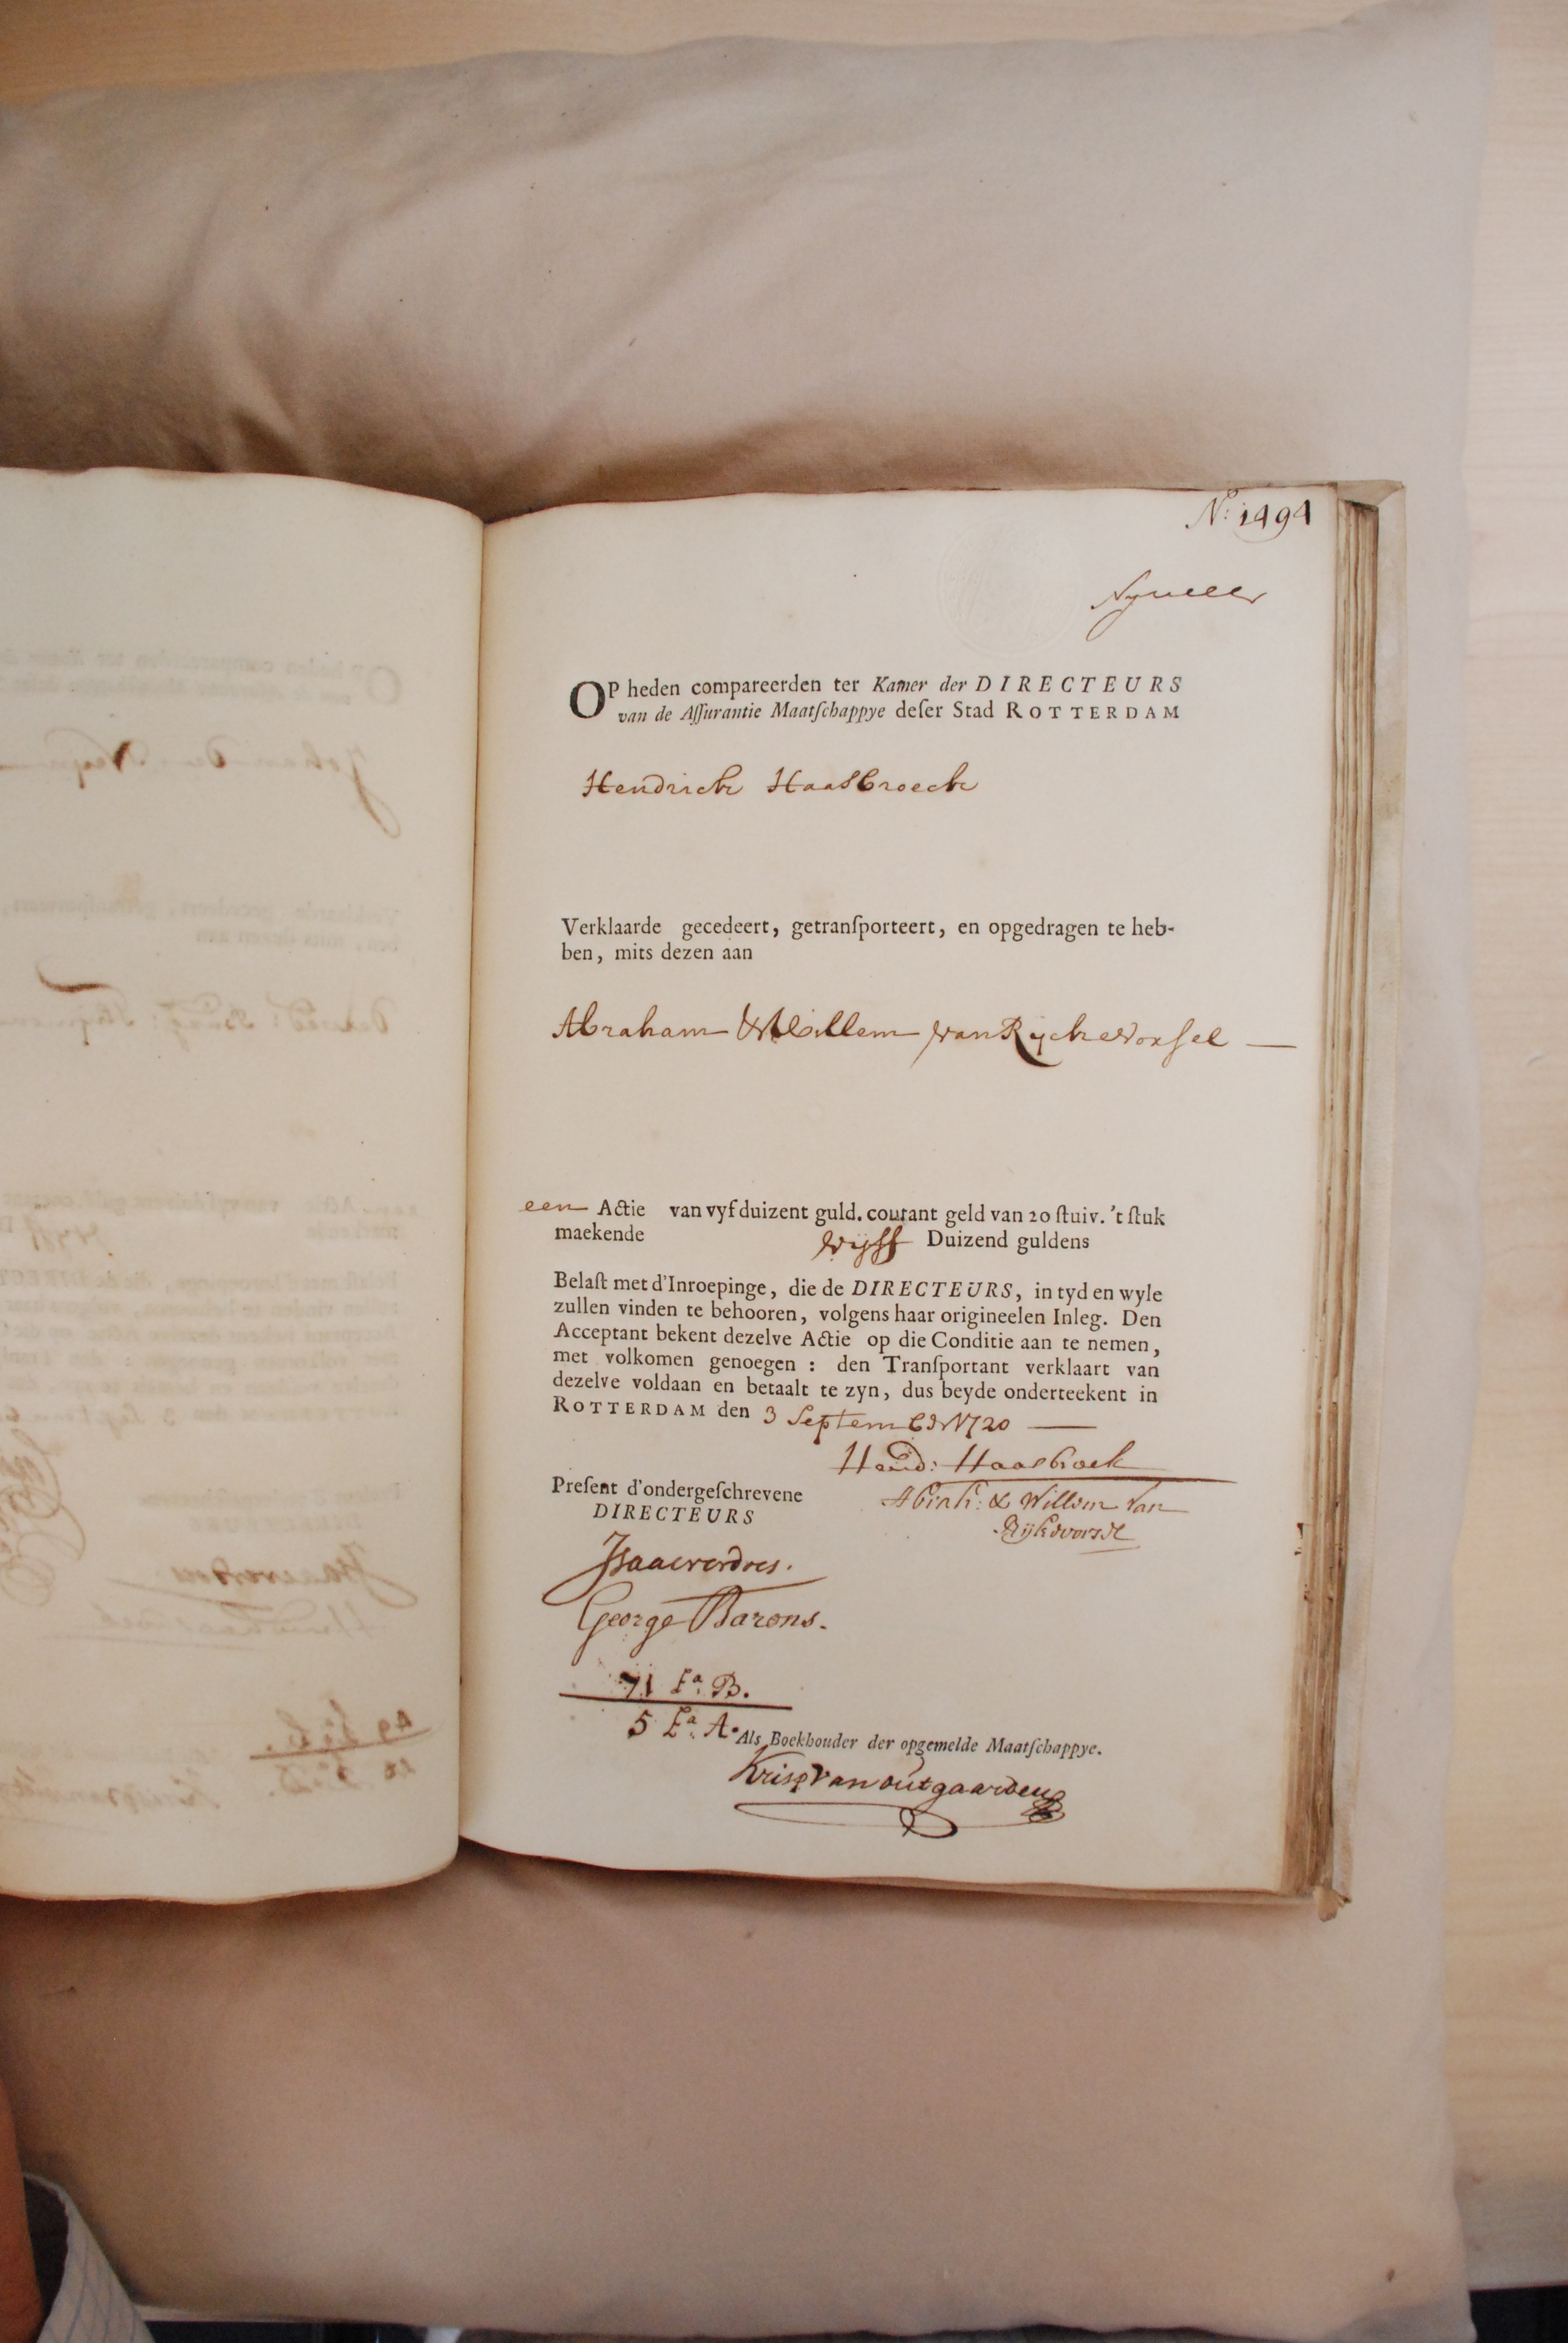 N: 1494
OP heden compareerden ter Kamer der DIRECTEURS
van de Aſſurantie Maatſchappye deſer Stad ROTTERDAM
Hendrick Haasbroeck
Verklaarde gecedeert, getranſporteert, en opgedragen te heb-
ben, mits dezen aan
Abraham & Willem van Ryckevorsel
een Actie van vyfduizent guld. courant geld van 20 ſtuiv. 't ſtuk
maekende vyff Duizend guldens
Belaſt met d'Inroepinge, die de DIRECTEURS, in tyd en wyle
zullen vinden te behooren, volgens haar origineelen Inleg. Den
Acceptant bekent dezelve Actie op die Conditie aan te nemen,
met volkomen genoegen : den Tranſportant verklaart van
dezelve voldaan en betaalt te zyn, dus beyde onderteekent in
ROTTERDAM den 3 September 1720
Hend: Haasbroek
Preſent d'ondergeſchrevene
DIRECTEURS
Abrah: & Willem Van
Rijkevorsel
Isaac verdoes.
George Barons.
71 La. B.
5 La. A.
Als Boekhouder der opgemelde Maatſchappye.
Krisp van outgaarden